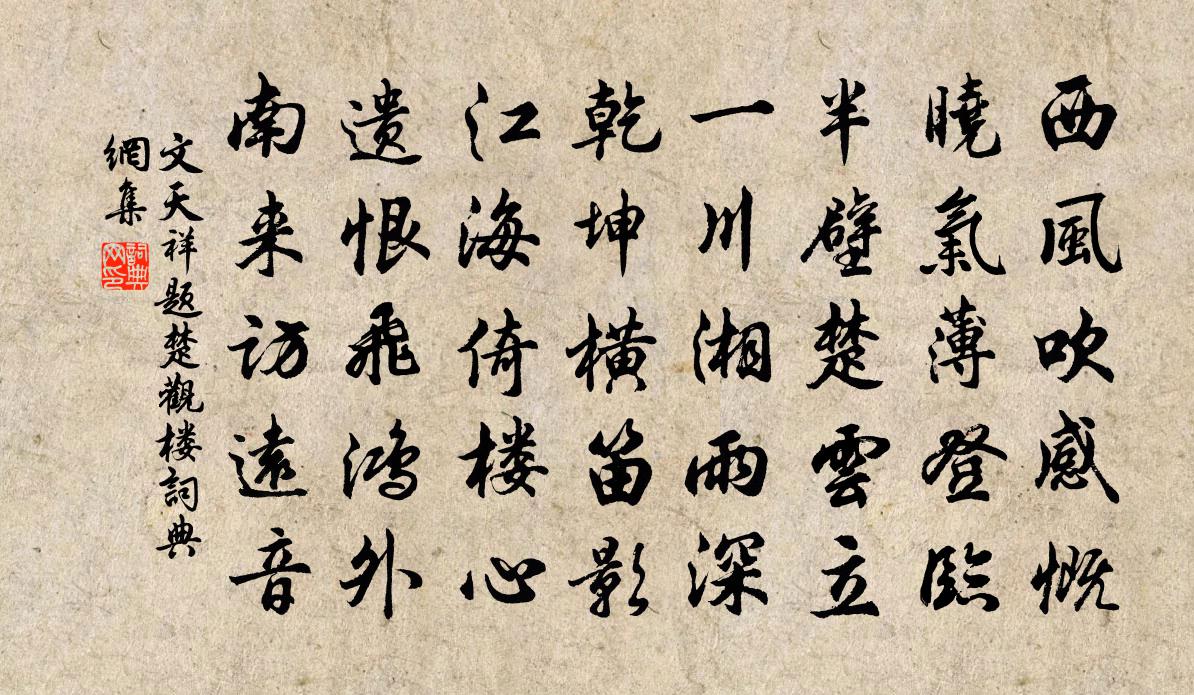 西風吹感慨
曉氣薄登臨
半壁楚雲立
一川湘雨深
乾坤橫笛影
江海倚楼心
遗恨飛鴻外
南来訪遠音
文天祥題楚觀楼詞典
網集
詞典
网印